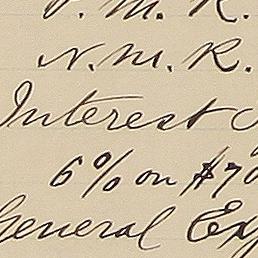 . M. R.
N. M. R.
Interest
6% on $70
General Exp